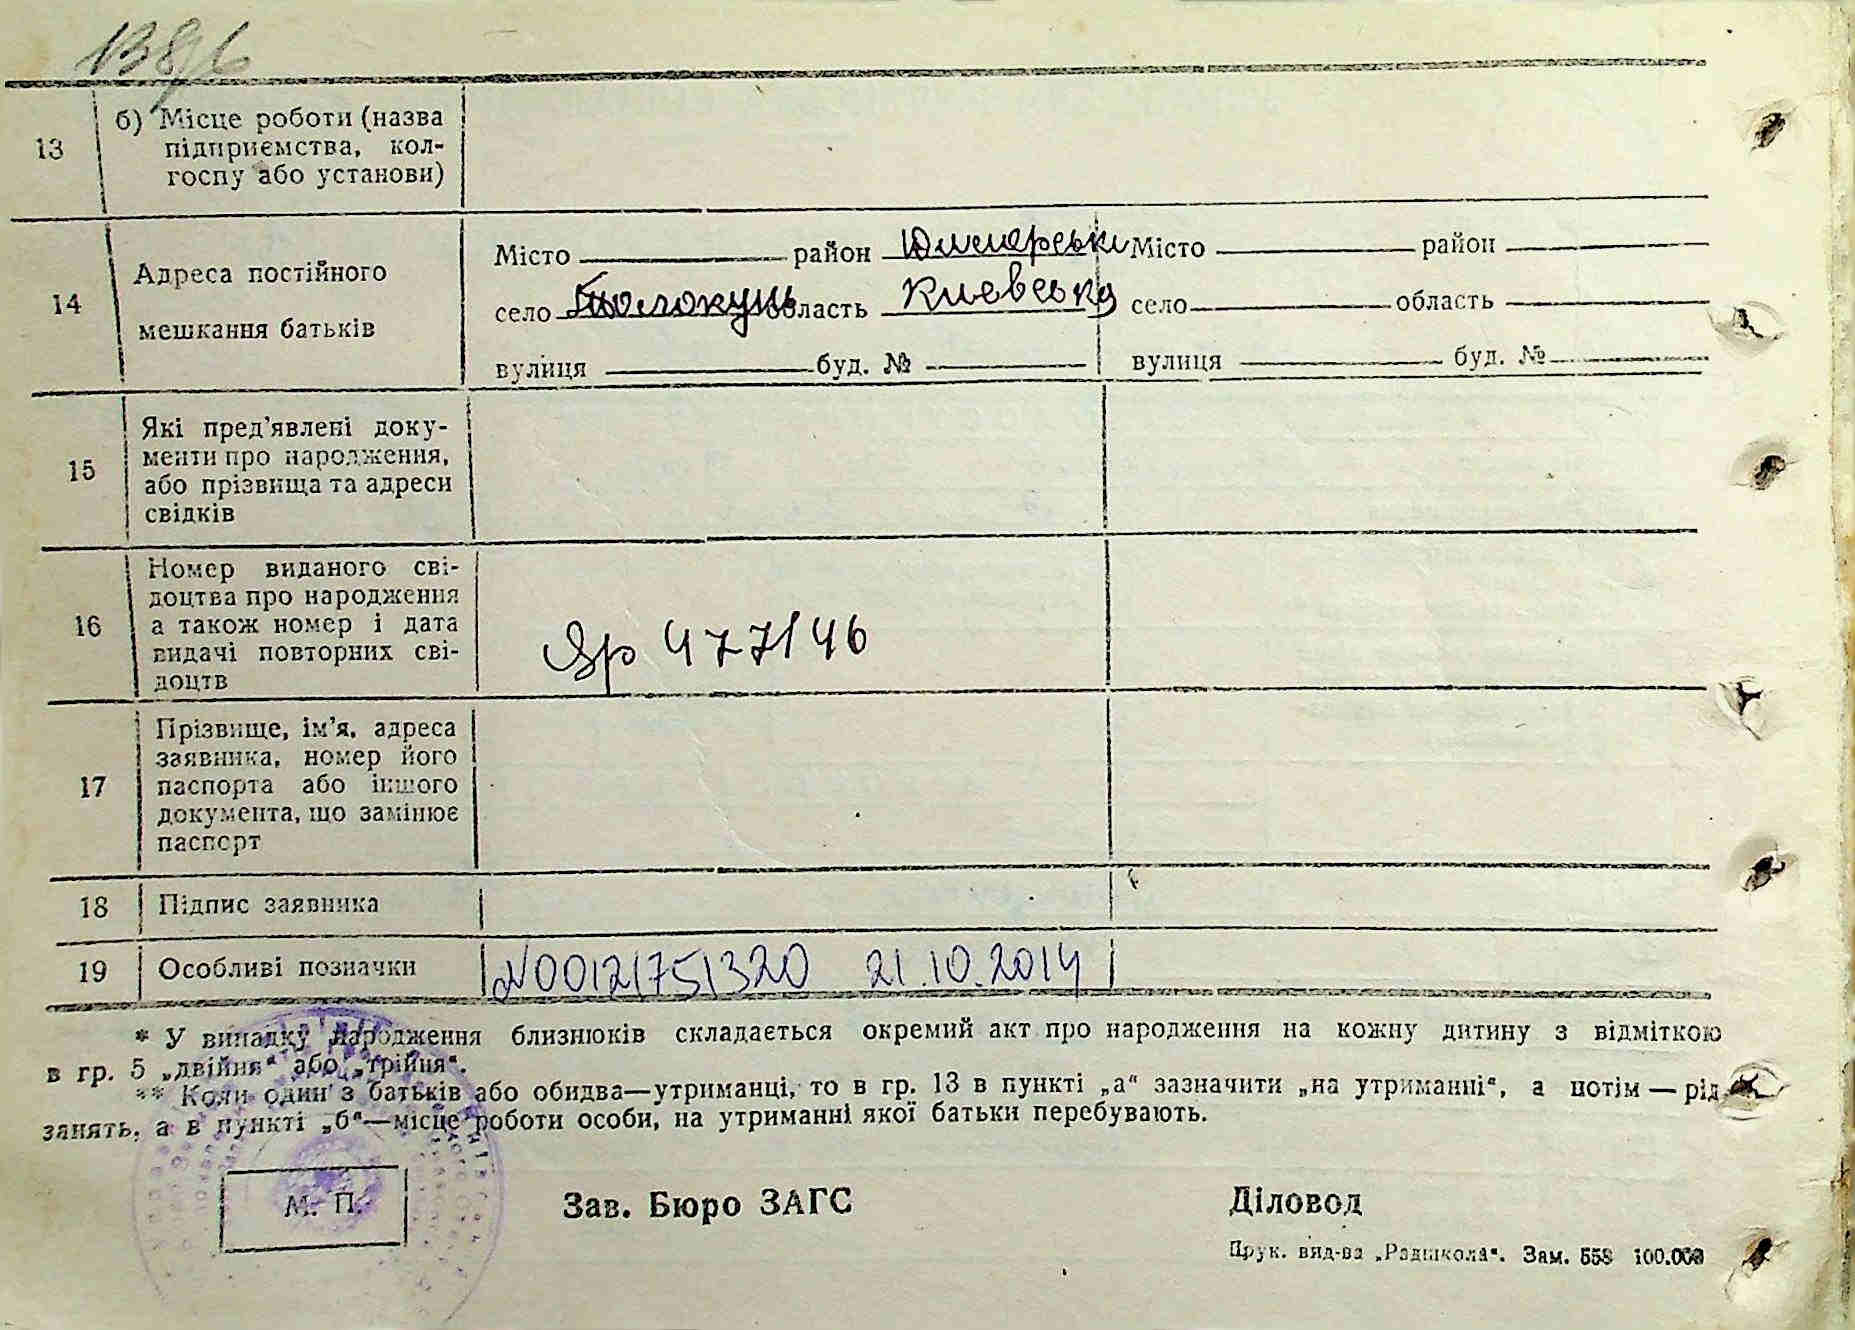 138/б
13
б) Місце роботи (назва
підприємства, кол-
госпу або установи)
14
Адреса постійного
мешкання батьків
Місто район Димерськи
село Толокунь область Киевська
вулиця буд. №
Місто район
село область
вулиця буд. №
15
Які пред'явлені доку-
менти про народження,
або прізвища та адреси
свідків
16
Номер виданого сві-
доцтва про народження
а також номер і дата
видачі повторних сві-
доцтв
477146
17
Прізвище, ім'я, адреса
заявника, номер його
паспорта або іншого
документа, що замінює
паспорт
18
Підпис заявника
19
Особливі позначки
N00121751320 21.10.2014
* У випадку народження близнюків складається окремий акт про народження на кожну дитину з відміткою
в гр. 5 „двійня“ або „трійня“.
** Коли один з батьків або обидва—утриманці, то в гр. 13 в пункті „а“ зазначити „на утриманні“, а потім — рід
занять, а в пункті „б“—місце роботи особи, на утриманні якої батьки перебувають.
М. П.
Зав. Бюро ЗАГС
Діловод
Прук. вид-ва „Радшкола“. Зам. 558 100.000